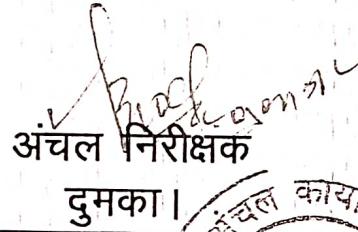 अंचल निरीक्षक
दुमका।
अंचल काया